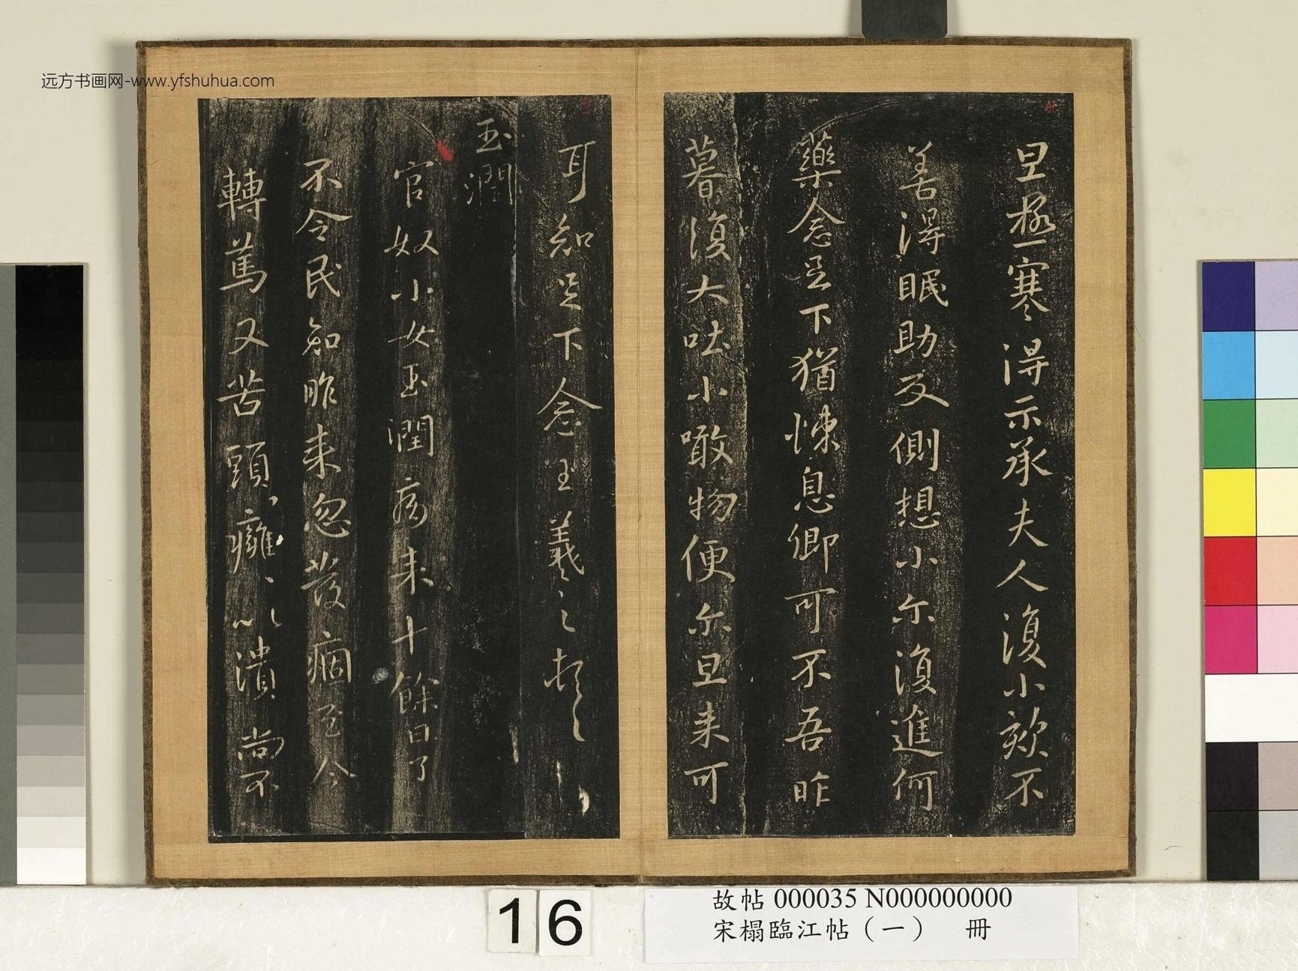 远方书画网-www.yfshuhua.com
旦極寒得示承夫人復小欬不
善得眠助反側想小尔復進何
藥念足下猶悚息卿可不吾昨
暮復大吐小噉物便尔旦来可
耳知足下念王羲之頓
玉潤
官奴小女玉潤病来十餘日了
不令民知昨来忽發痼至今
轉篤又苦頭癰以潰尚不
16
故帖 000035 N000000000
宋榻臨江帖（一） 冊